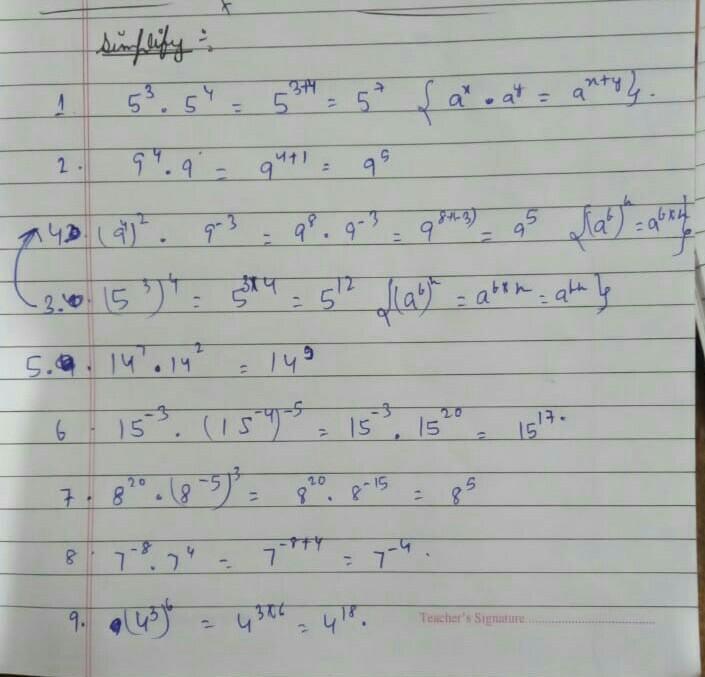 Simplify :-
1. 5³ · 5⁴ = 5³⁺⁴ = 5⁷ { aˣ · aʸ = aˣ⁺ʸ }.
2. 9⁴ · 9 = 9⁴⁺¹ = 9⁵
4. (9⁴)² · 9⁻³ = 9⁸ · 9⁻³ = 9⁸⁺⁽⁻³⁾ = 9⁵ {(aᵇ)ⁿ = aᵇˣⁿ}
3. (5³)⁴ = 5³ˣ⁴ = 5¹² {(aᵇ)ⁿ = aᵇˣⁿ = aᵇⁿ}
5. 14⁷ · 14² = 14⁹
6. 15⁻³ · (15⁻⁴)⁻⁵ = 15⁻³ · 15²⁰ = 15¹⁷.
7. 8²⁰ · (8⁻⁵)³ = 8²⁰ · 8⁻¹⁵ = 8⁵
8. 7⁻⁸ · 7⁴ = 7⁻⁸⁺⁴ = 7⁻⁴.
9. (4³)⁶ = 4³ˣ⁶ = 4¹⁸.
Teacher's Signature